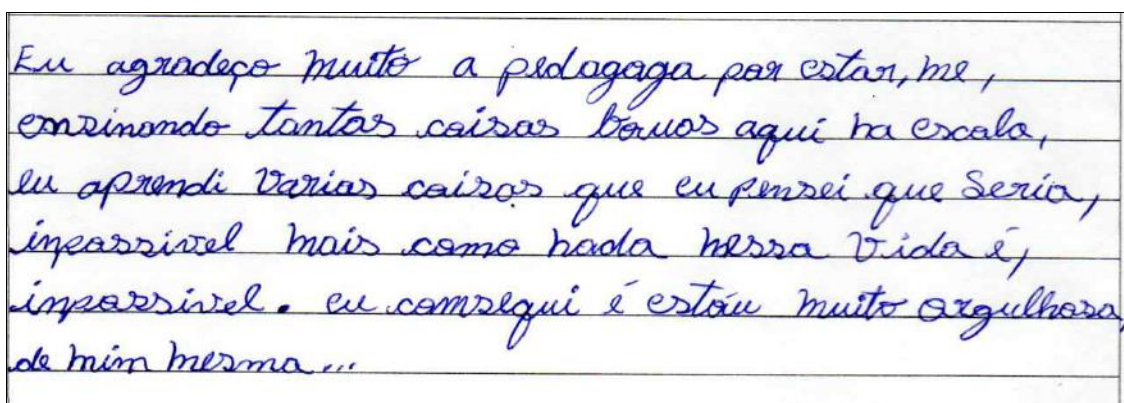 Eu agradeço muito a pedagoga por estar, me,
ensinando tantas coisas bouas aqui na escola,
eu aprendi varias coisas que eu pensei que Seria,
inpossivel mais como nada nessa Vida é,
inpossivel. eu comsegui é estóu muito orgulhosa,
de mim mesma...